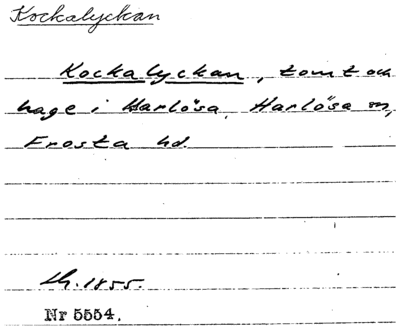 Kockalyckan
Kockalyckan, tomt och
hage i Harlösa, Harlösa sn,
Frosta hd.
Lh. 1855.
Nr 5554.